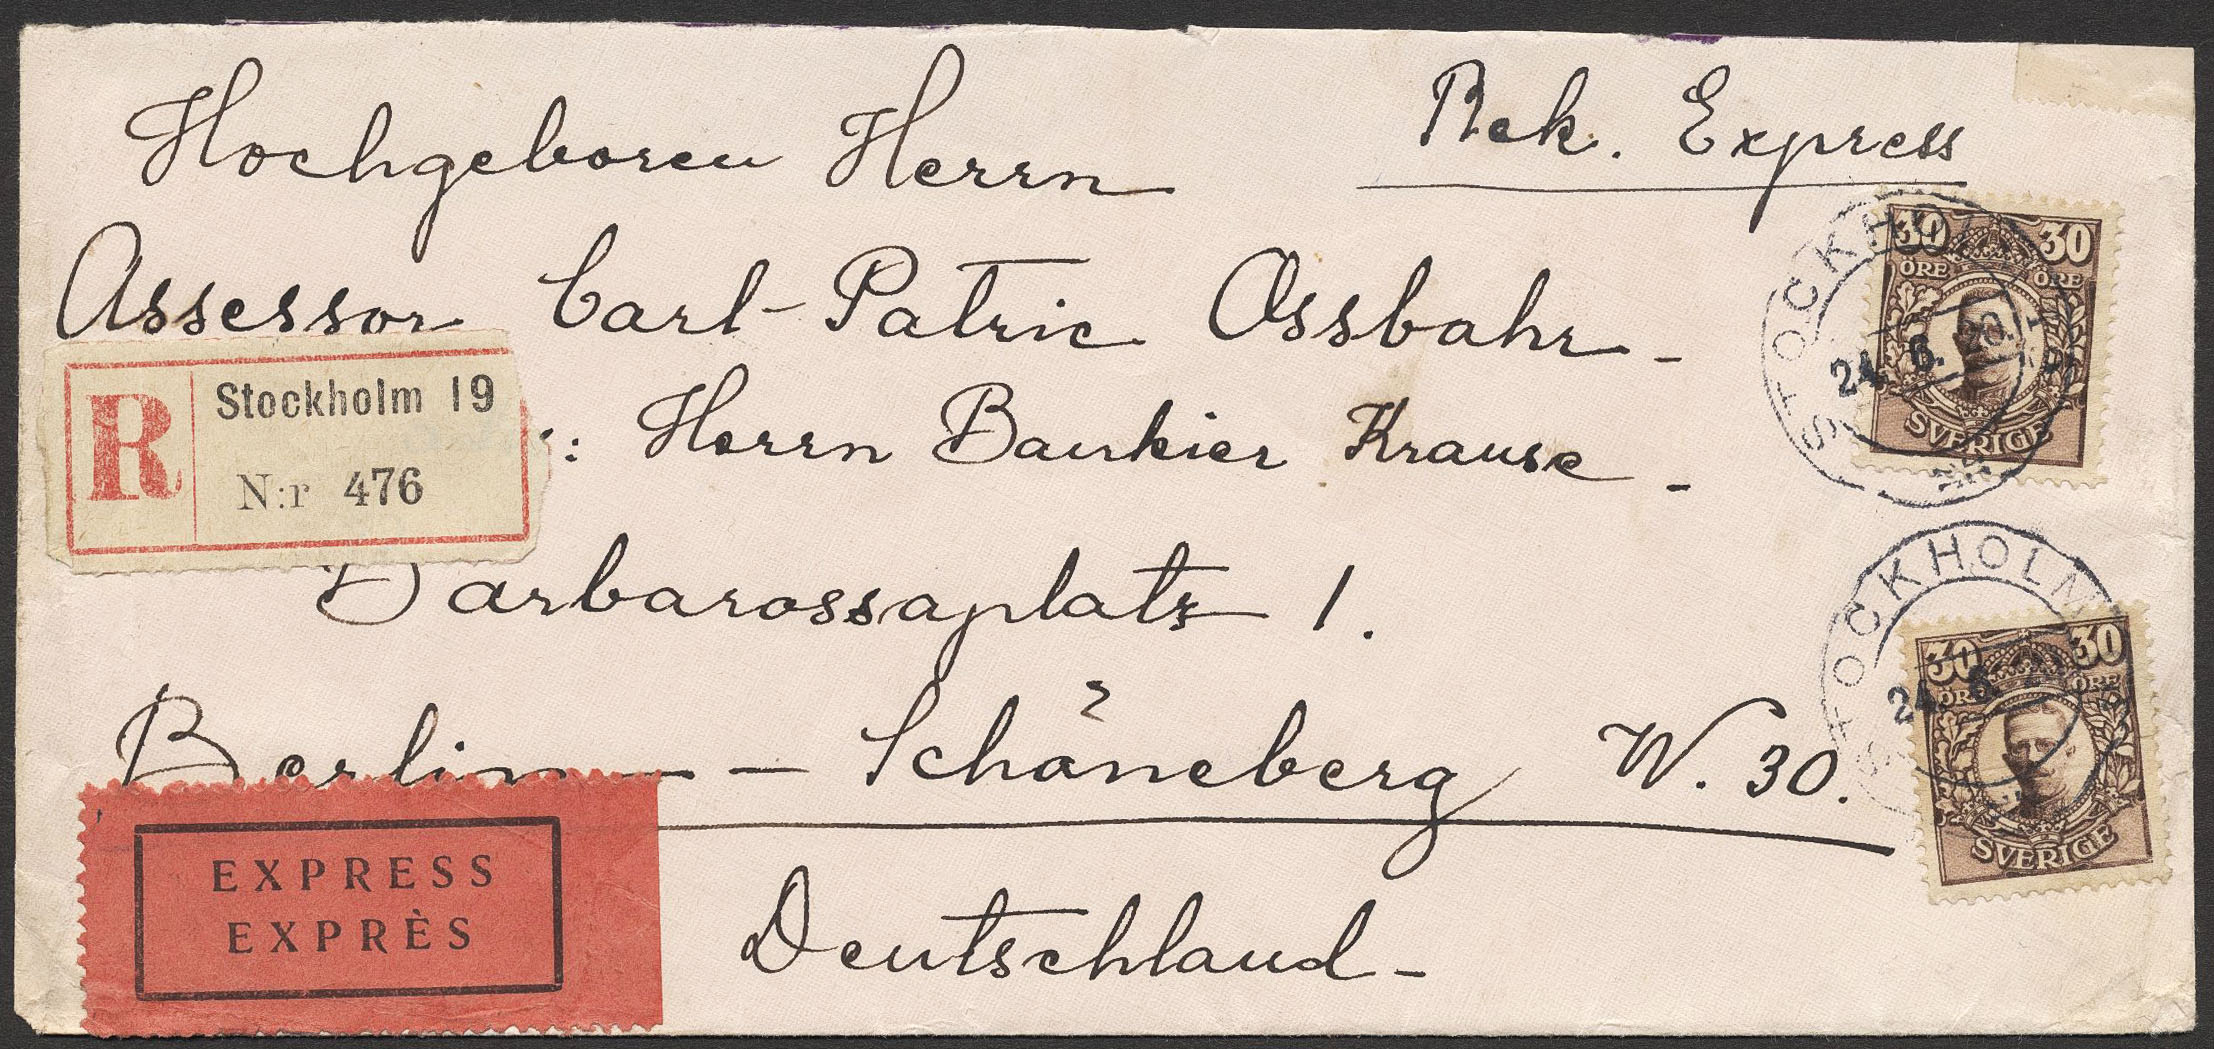 Hochgeboren Herrn
Rek. Express
Assessor Carl-Patric Ossbahr -
: Herrn Bankier Krause -
Barbarossaplatz 1.
Berlin - Schöneberg W. 30.
Deutschland -
R
Stockholm 19
N:r 476
EXPRESS
EXPRÈS
30 30
ÖRE ÖRE
SVERIGE
STOCKHOLM
24. 6. 20.
30 30
ÖRE ÖRE
SVERIGE
STOCKHOLM
24. 6.